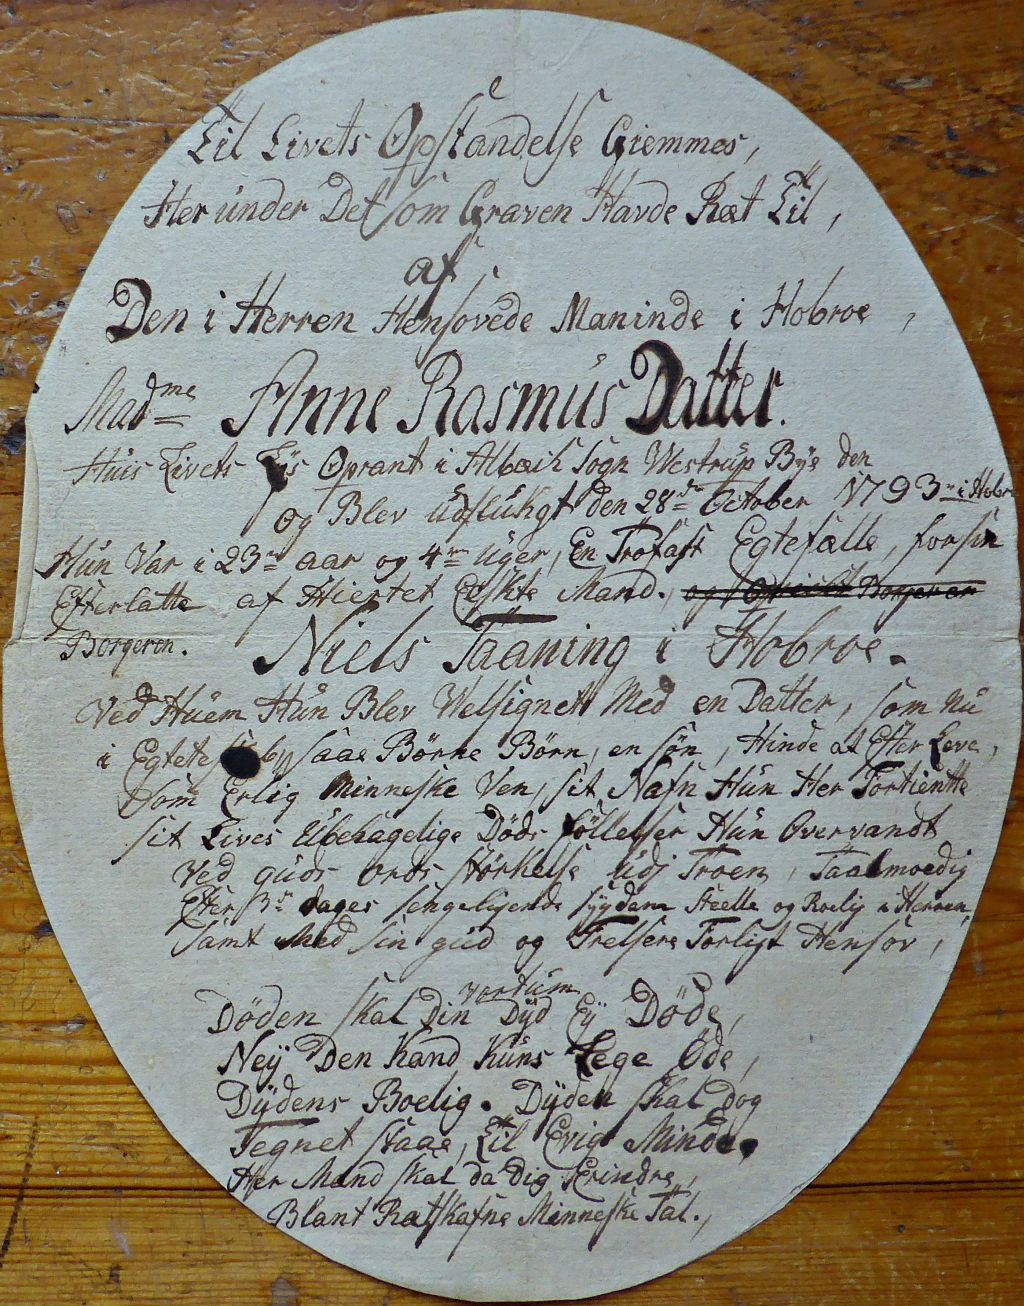 Til Livets Opstandelse Giemmes,
Her ünder Det som Graven Havde Ræt Til,
af
Den i Herren Hensovede Maninde i Hobroe,
Madme Anne Rasmüs Datter.
Huis Livets Liis Oprant i Albæk Sogn Westrup Bye den
og Blev üdslükgt den 28de October 1793 i Hobro
Hün Var i 23 aar og 4 Uger, En Trofast Egtefælle, for sin
Efterlatte af Hiertet Elskte Mand.,
Borgeren. Niels Taaning i Hobroe.
Ved Hüem Hün Blev Welsignet Med en Datter, som Nü
i saae Börne Börn, en sön, Hinde at Efter Leve,
som Erlig Minneske Ven, sit Nafn Hün Her Fortientte
sit Lives Ubehagelige Döds föllelser Hün Overvandt
Ved güds ords störkelse üdi Troen, Taalmoedig
Efter 3 dages sengeligende sÿgdom Steelle og Roelig i Herren
samt Med sin güd og Frelsere Forligt Hensov,
Döden skal Din vordüm Dÿd Eÿ Döde,
Neÿ Den Kand Küns Lege Öde,
Dÿdens Boelig. Dÿden skal dog
Tegnet staae, Til Evig Minde.
Her Mand skal da Dig Erindre,
Blant Rætskafne Minneske Tal.,